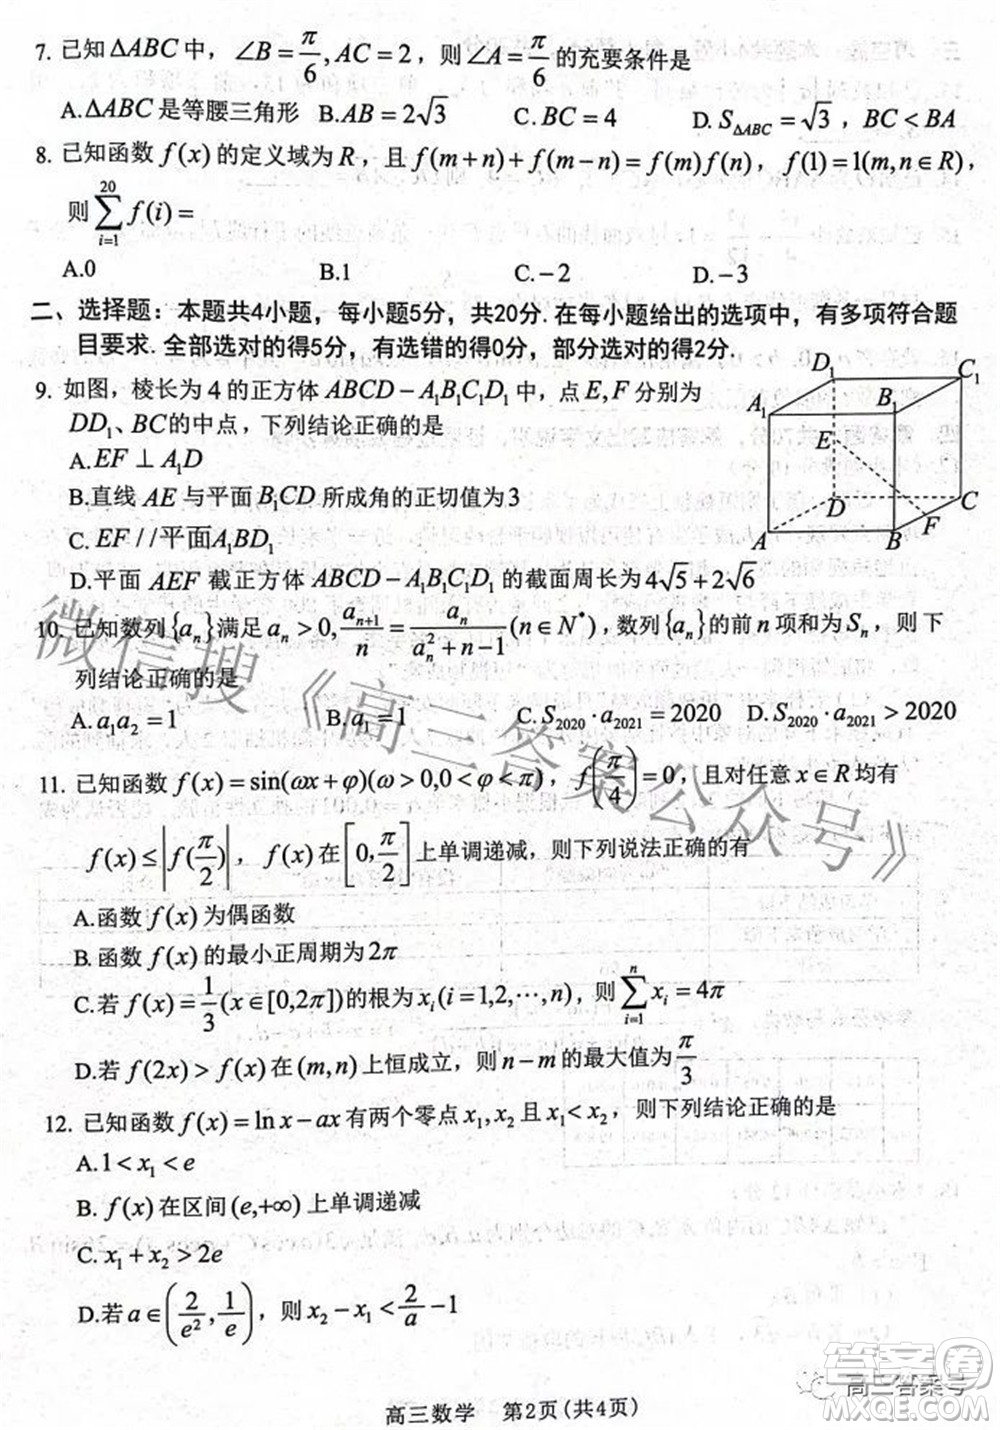 7. 已知 ΔABC 中，∠B = π/6, AC = 2，则 ∠A = π/6 的充要条件是
A. ΔABC 是等腰三角形 B. AB = 2√3 C. BC = 4 D. S_{ΔABC} = √3，BC < BA
8. 已知函数 f(x) 的定义域为 R，且 f(m+n)+f(m−n)=f(m)f(n)，f(1)=1(m,n∈R),
则 ∑_{i=1}^{20} f(i)=
A.0 B.1 C.−2 D.−3
二、选择题：本题共4小题，每小题5分，共20分.在每小题给出的选项中，有多项符合题
目要求.全部选对的得5分，有选错的得0分，部分选对的得2分.
9. 如图，棱长为 4 的正方体 ABCD−A₁B₁C₁D₁ 中，点 E,F 分别为
DD₁、BC 的中点，下列结论正确的是
A. EF ⊥ A₁D
B.直线 AE 与平面 B₁CD 所成角的正切值为 3
C. EF // 平面 A₁BD₁
D.平面 AEF 截正方体 ABCD−A₁B₁C₁D₁ 的截面周长为 4√5 + 2√6
D₁ C₁
A₁ B₁
E
D C
F
A B
10. 已知数列{aₙ}满足 aₙ>0, a_{n+1}/n = aₙ/(aₙ²+n−1) (n∈N*)，数列{aₙ}的前 n 项和为 Sₙ，则下
列结论正确的是
A. a₁a₂ = 1 B. a₁ = 1 C. S₂₀₂₀·a₂₀₂₁ = 2020 D. S₂₀₂₀·a₂₀₂₁ > 2020
11. 已知函数 f(x)=sin(ωx+φ)(ω>0,0<φ<π)，f(π/4)=0，且对任意 x∈R 均有
f(x)≤|f(π/2)|，f(x)在[0,π/2]上单调递减，则下列说法正确的有
A.函数 f(x) 为偶函数
B. 函数 f(x) 的最小正周期为 2π
C.若 f(x)=1/3(x∈[0,2π])的根为 xᵢ(i=1,2,⋯,n)，则 ∑_{i=1}^{n} xᵢ=4π
D.若 f(2x)>f(x) 在 (m,n) 上恒成立，则 n−m 的最大值为 π/3
12. 已知函数 f(x)=ln x−ax 有两个零点 x₁,x₂ 且 x₁<x₂，则下列结论正确的是
A. 1<x₁<e
B. f(x) 在区间 (e,+∞) 上单调递减
C. x₁+x₂>2e
D.若 a∈(2/e²,1/e)，则 x₂−x₁<2/a−1
高三数学 第2页(共4页)
微信搜《高三答案公众号》
高三答案号
答案圈
MXQE.COM